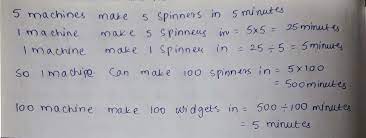 5 machines make 5 spinners in 5 minutes
1 machine make 5 spinners in = 5x5 = 25 minutes
1 machine make 1 spinner in = 25 ÷ 5 = 5 minutes
So 1 machine can make 100 spinners in = 5x100
= 500 minutes
100 machine make 100 widgets in = 500 ÷ 100 minutes
= 5 minutes